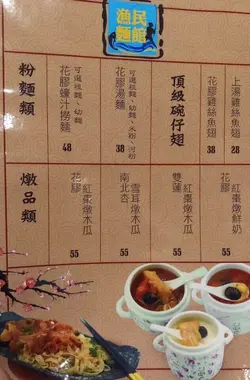 漁民
麵館
頂級碗仔翅
上湯雞絲魚翅
38
花膠雞絲魚翅
38
粉麵類
可選粗麵、幼麵、米粉、河粉
花膠湯麵
38
可選粗麵、幼麵
花膠蠔汁撈麵
48
燉品類
花膠
紅棗燉木瓜
55
南北杏
雪耳燉木瓜
55
雙蓮
紅棗燉木瓜
55
花膠
紅棗燉鮮奶
55